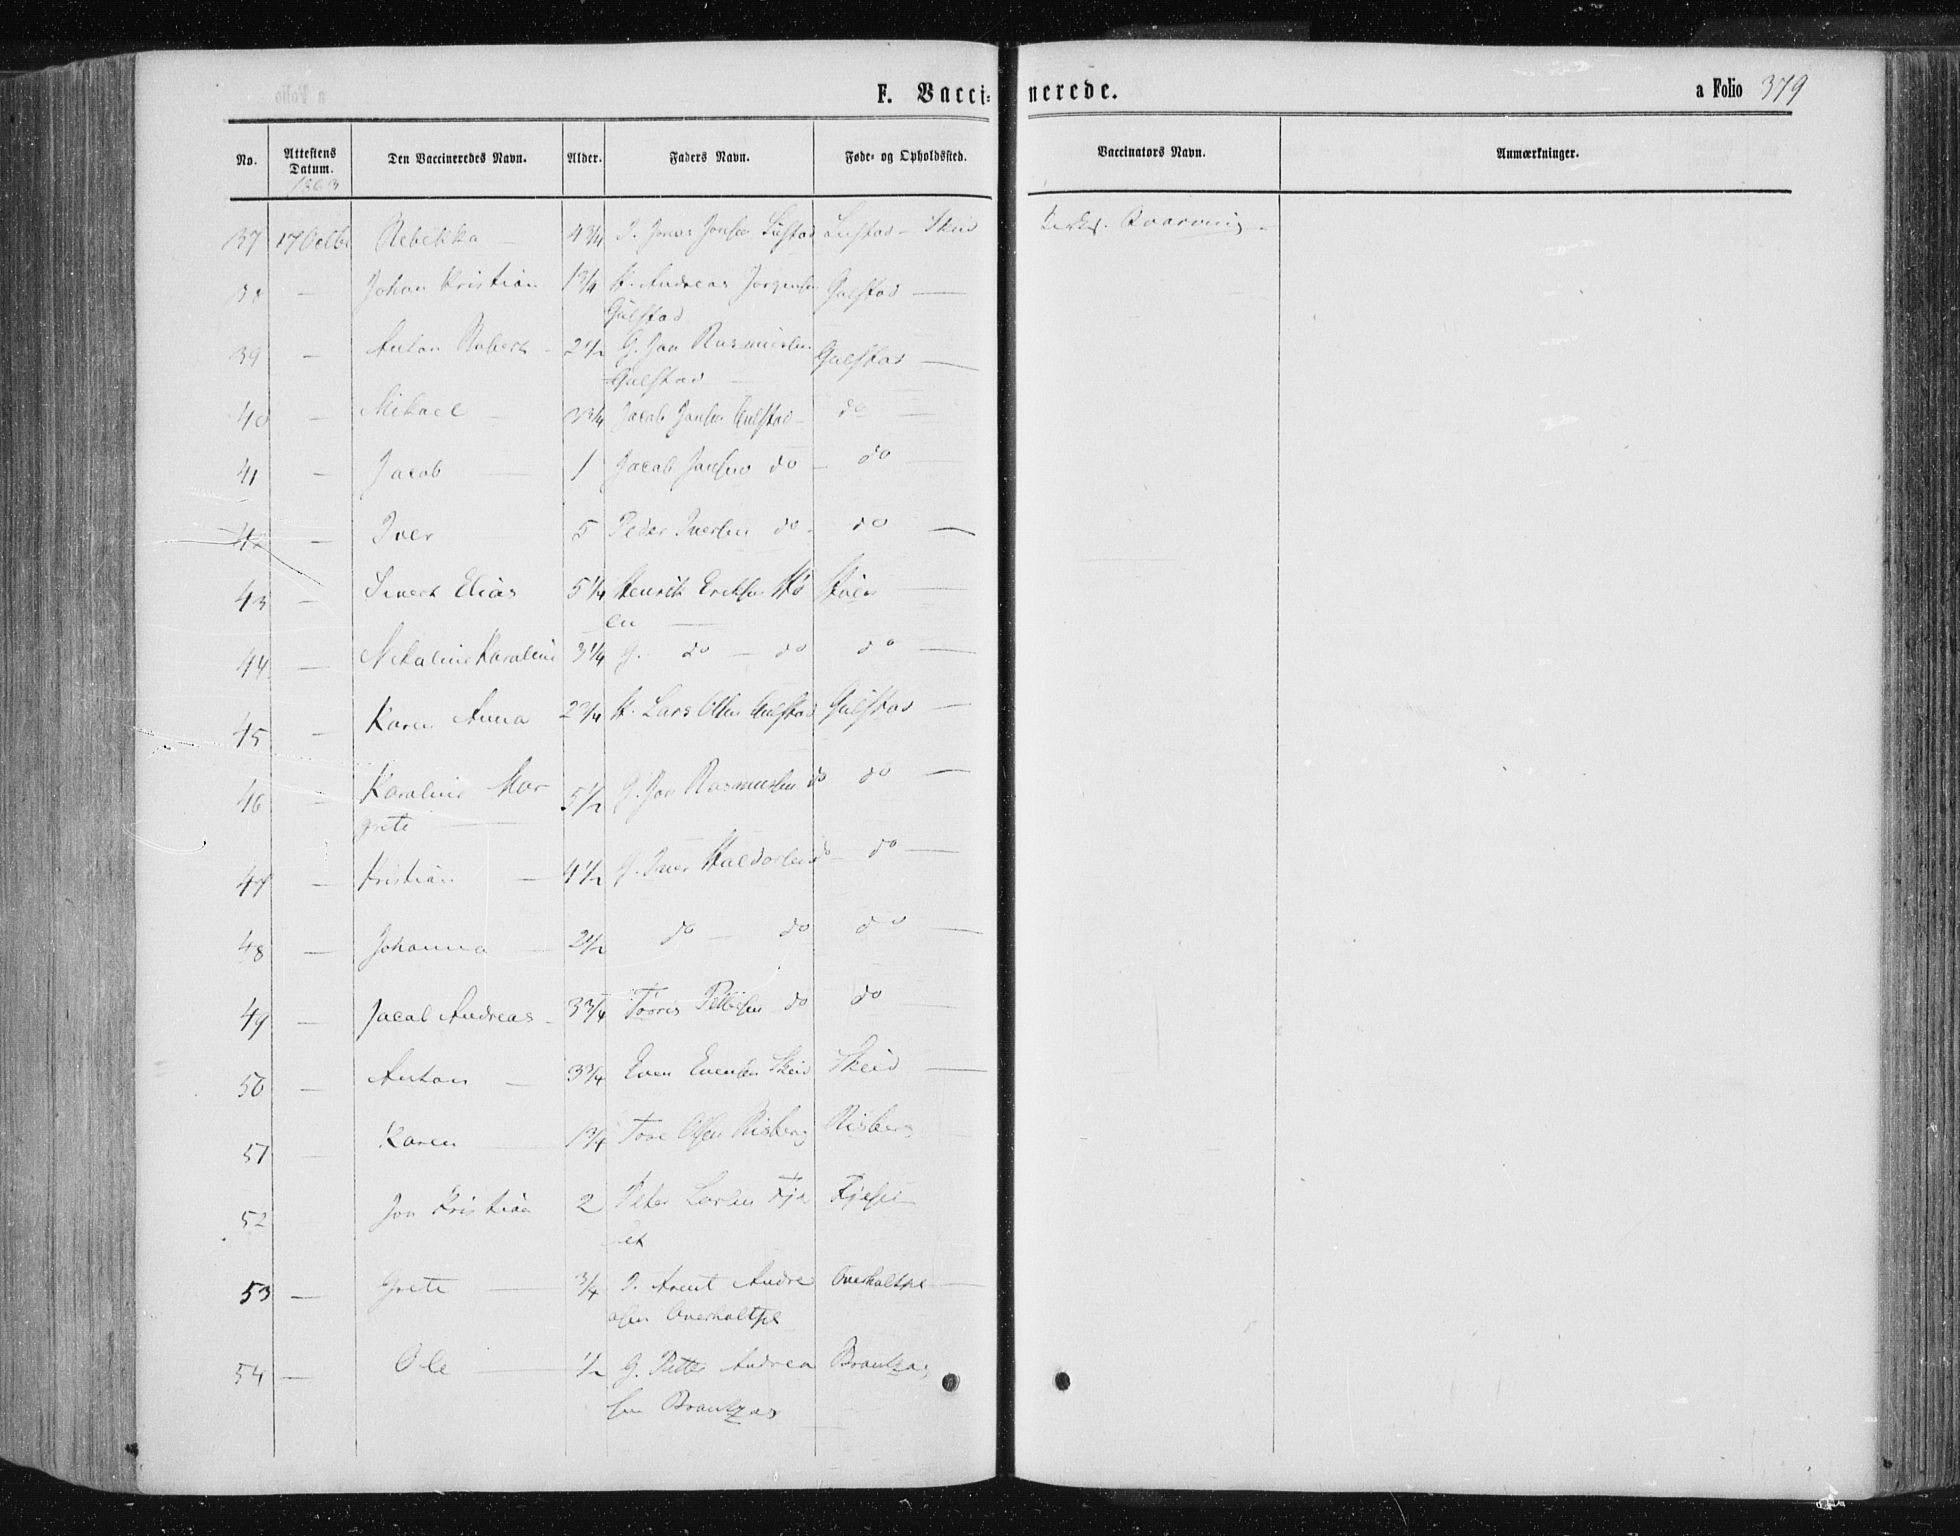 F. Vaccinerede.
a Folio 379
No. Attestens Datum. Den Vaccineredes Navn. Alder. Faders Navn. Føde- og Opholdssted. Vaccinators Navn. Anmærkninger.
1863
37 17 Octbr Rebekka — 4 3/4 Jonas Skeid
38 — Johan Kristian 1 3/4 H. Andreas Jörgensen Gulstad —
Gulstad
39 — Anton Robert - 2 1/2 G. Jon Rasmussen Gulstad —
Gulstad —
40 — Mikael — 3/4 Jacob Jonsen Gulstad — do —
41 — Jacob — 1 Jacob Jonsen do — do —
42 — Iver 5 Peder Iversen do - do —
43 — Elias 5 1/4 Henrik Eriksen Hö Höien —
en —
44 — Karoline 3 1/4 G. do — do do —
45 — Karen Anna 2 3/4 H. Lars Olsen Gulstad Gulstad —
46 — Karoline Mar 5 1/2 G. Jon Rasmussen do do —
grete —
47 — Kristian — 4 1/2 G. Iver Haldorsen do — do —
48 — Johanna — 2 1/2 do — do do —
49 — Jacob Andreas - 3 3/4 do do —
50 — Anton — 3 3/4 Even Evensen Skeid Skeid —
51 — Karen — 1 3/4 Tore Olsen Risberg Risberg —
52 Jon Kristian 2 Peter Larsen
53 — Grete — 3/4 Arent Andre Overhaltpl —
asen Overhaltpl
54 — Ole — 1/2 G. Petter Andrea
sen